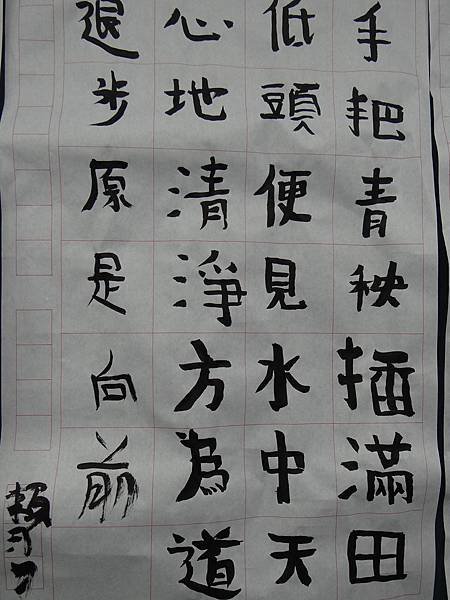 手把青秧插滿田
低頭便見水中天
心地清淨方為道
退步原是向前